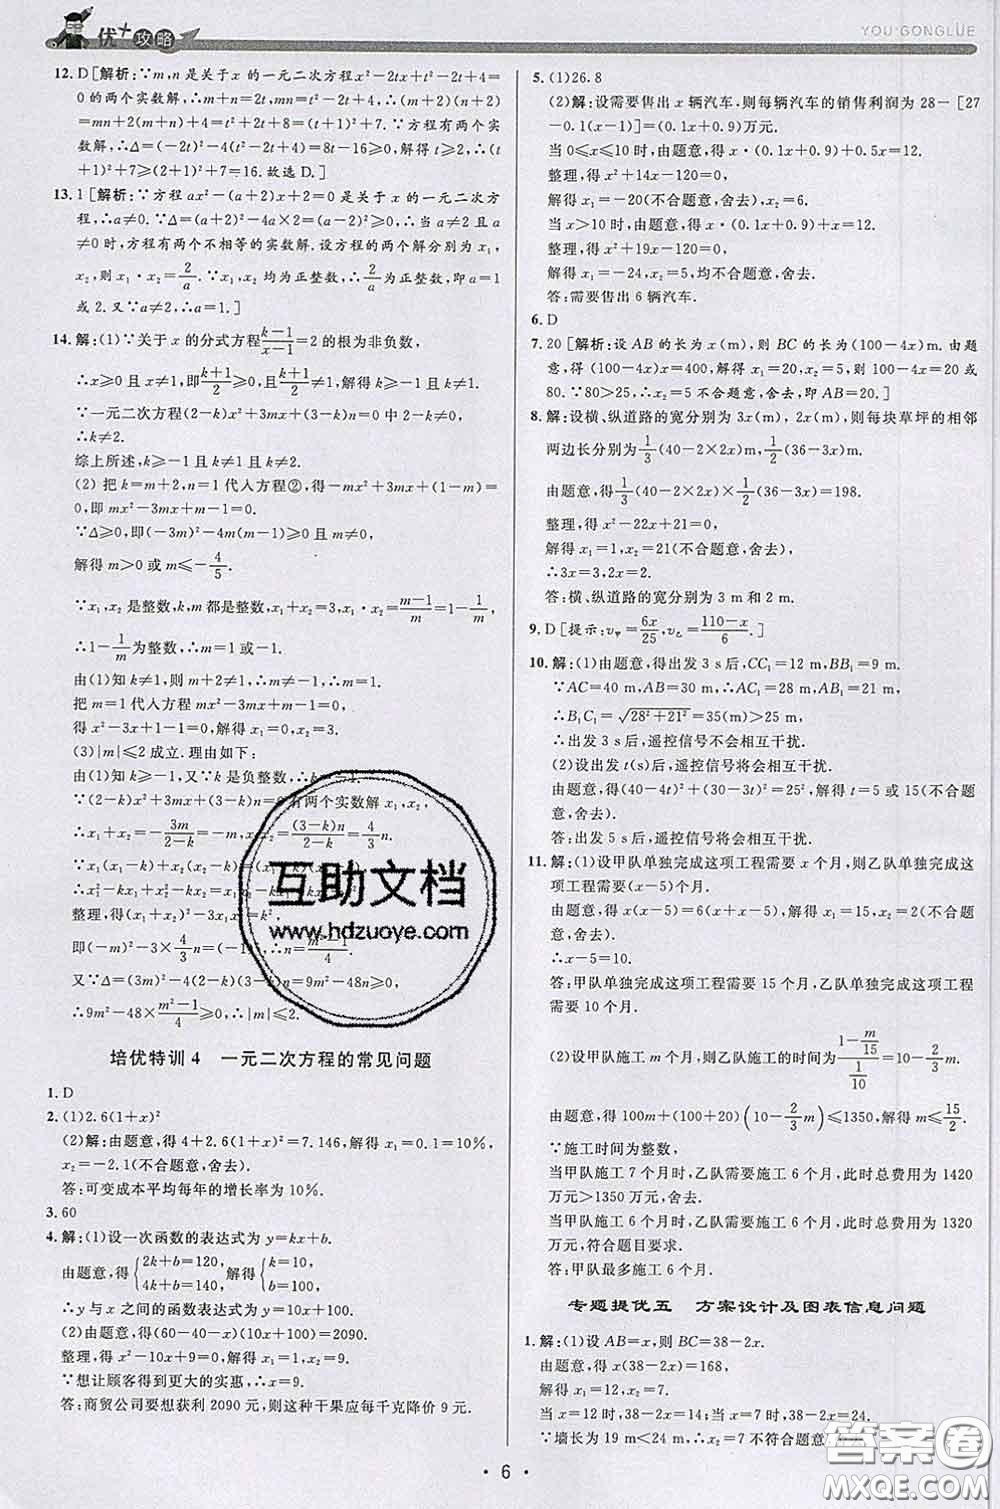 优+攻略
YOU·GONGLÜE
12. D [解析:∵m,n是关于x的一元二次方程x²-2tx+t²-2t+4=
0的两个实数解,∴m+n=2t,mn=t²-2t+4,∴(m+2)(n+2)
=mn+2(m+n)+4=t²+2t+8=(t+1)²+7.∵方程有两个实
数解,∴Δ=(-2t)²-4(t²-2t+4)=8t-16≥0,解得t≥2,∴(t
+1)²+7≥(2+1)²+7=16.故选D.]
13. 1 [解析:∵方程ax²-(a+2)x+2=0是关于x的一元二次方
程,∴a≠0.∵Δ=(a+2)²-4a×2=(a-2)²≥0,∴当a≠2且a
≠0时,方程有两个不相等的实数解.设方程的两个解分别为x₁,
x₂,则x₁·x₂=2/a.∵x₁,x₂均为正整数,∴2/a为正整数,即a=1
或2.又∵a≠2,∴a=1.]
14. 解:(1)∵关于x的分式方程(k-1)/(x-1)=2的根为非负数,
∴x≥0且x≠1,即(k+1)/2≥0且(k+1)/2≠1,解得k≥-1且k≠1.
∵一元二次方程(2-k)x²+3mx+(3-k)n=0中2-k≠0,
∴k≠2.
综上所述,k≥-1且k≠1且k≠2.
(2)把k=m+2,n=1代入方程②,得-mx²+3mx+(1-m)=
0,即mx²-3mx+m-1=0.
∵Δ≥0,即(-3m)²-4m(m-1)≥0且m≠0,
解得m>0或m≤-4/5.
∵x₁,x₂是整数,k,m都是整数,x₁+x₂=3,x₁·x₂=(m-1)/m=1-1/m,
∴1-1/m为整数,∴m=1或-1.
由(1)知k≠1,则m+2≠1,∴m≠-1,∴m=1.
把m=1代入方程mx²-3mx+m-1=0,
得x²-3x+1-1=0,解得x₁=0,x₂=3.
(3)|m|≤2成立.理由如下:
由(1)知k≥-1,又∵k是负整数,∴k=-1.
∵(2-k)x²+3mx+(3-k)n=0有两个实数解x₁,x₂,
∴x₁+x₂=-3m/(2-k)=-m,x₁x₂=(3-k)n/(2-k)=4/3n.
∵x₁(x₁-k)+x₂(x₂-k)=(x₁-k)(x₂-k),
整理,得(x₁+x₂)²-3x₁x₂=k²,
即(-m)²-3×4/3n=(-1)²,∴n=(m²-1)/4.
又∵Δ=(3m)²-4(2-k)(3-k)n=9m²-48n≥0,
∴9m²-48×(m²-1)/4≥0,∴|m|≤2.
培优特训4 一元二次方程的常见问题
1. D
2. (1)2.6(1+x)²
(2)解:由题意,得4+2.6(1+x)²=7.146,解得x₁=0.1=10%,
x₂=-2.1(不合题意,舍去).
答:可变成本平均每年的增长率为10%.
3. 60
4. 解:(1)设一次函数的表达式为y=kx+b.
由题意,得{2k+b=120, 4k+b=140,解得{k=10, b=100.
∴y与x之间的函数表达式为y=10x+100.
(2)由题意,得(60-40-x)(10x+100)=2090.
整理,得x²-10x+9=0,解得x₁=1,x₂=9.
∵想让顾客得到更大的实惠,∴x=9.
答:商贸公司要想获利2090元,则这种干果应每千克降价9元.
5. (1)26.8
(2)解:设需要售出x辆汽车,则每辆汽车的销售利润为28-[27
-0.1(x-1)]=(0.1x+0.9)万元.
当0≤x≤10时,由题意,得x·(0.1x+0.9)+0.5x=12.
整理,得x²+14x-120=0,
解得x₁=-20(不合题意,舍去),x₂=6.
当x>10时,由题意,得x·(0.1x+0.9)+x=12.
整理,得x²+19x-120=0,
解得x₁=-24,x₂=5,均不合题意,舍去.
答:需要售出6辆汽车.
6. D
7. 20 [解析:设AB的长为x(m),则BC的长为(100-4x)m.由题
意,得(100-4x)x=400,解得x₁=20,x₂=5.则100-4x=20或
80.∵80>25,∴x₂=5不合题意,舍去,即AB=20.]
8. 解:设横、纵道路的宽分别为3x(m),2x(m),则每块草坪的相邻
两边长分别为1/3(40-2×2x)m,1/2(36-3x)m.
由题意,得1/3(40-2×2x)×1/2(36-3x)=198.
整理,得x²-22x+21=0,
解得x₁=1,x₂=21(不合题意,舍去),
∴3x=3,2x=2.
答:横、纵道路的宽分别为3m和2m.
9. D [提示:v甲=6x/25,v乙=(110-x)/6.]
10. 解:(1)由题意,得出发3s后,CC₁=12m,BB₁=9m.
∵AC=40m,AB=30m,∴AC₁=28m,AB₁=21m,
∴B₁C₁=√(28²+21²)=35(m)>25m,
∴出发3s后,遥控信号不会相互干扰.
(2)设出发t(s)后,遥控信号将会相互干扰.
由题意,得(40-4t)²+(30-3t)²=25²,解得t=5或15(不合题
意,舍去).
答:出发5s后,遥控信号将会相互干扰.
11. 解:(1)设甲队单独完成这项工程需要x个月,则乙队单独完成这
项工程需要(x-5)个月.
由题意,得x(x-5)=6(x+x-5),解得x₁=15,x₂=2(不合题意,
舍去).
∴x-5=10.
答:甲队单独完成这项工程需要15个月,乙队单独完成这项工程
需要10个月.
(2)设甲队施工m个月,则乙队施工的时间为(1-m/15)/(1/10)个月.
由题意,得100m+(100+50)(10-2/3m)≤1350,解得m≤15/2.
∵施工时间为整数,
当甲队施工7个月时,乙队需要施工6个月,此时总费用为1420
万元>1350万元,舍去.
当甲队施工6个月时,乙队需要施工6个月,此时总费用为1320
万元,符合题目要求.
答:甲队最多施工6个月.
专题提优五 方案设计及图表信息问题
1. 解:(1)设AB=x,则BC=38-2x.
由题意,得x(38-2x)=168,
解得x₁=12,x₂=7.
当x=12时,38-2x=14;当x=7时,38-2x=24.
∵墙长为19m<24m,∴x₂=7不符合题意
互助文档
www.hdzuoye.com
答案圈
MXQE.COM
·6·